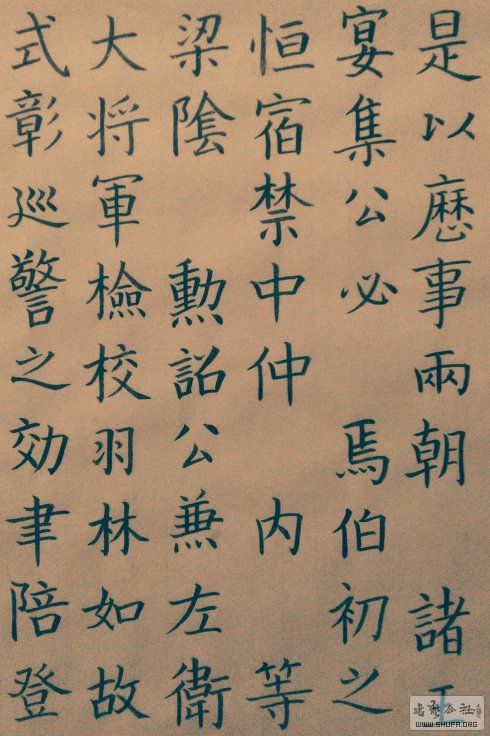 是以歷事兩朝 諸王
宴集公必 焉伯初之
恒宿禁中仲 内 等
梁陰 勲詔公兼左衛
大将軍檢校羽林如故
式彰巡警之効聿陪登
WWW.SHUFA.ORG